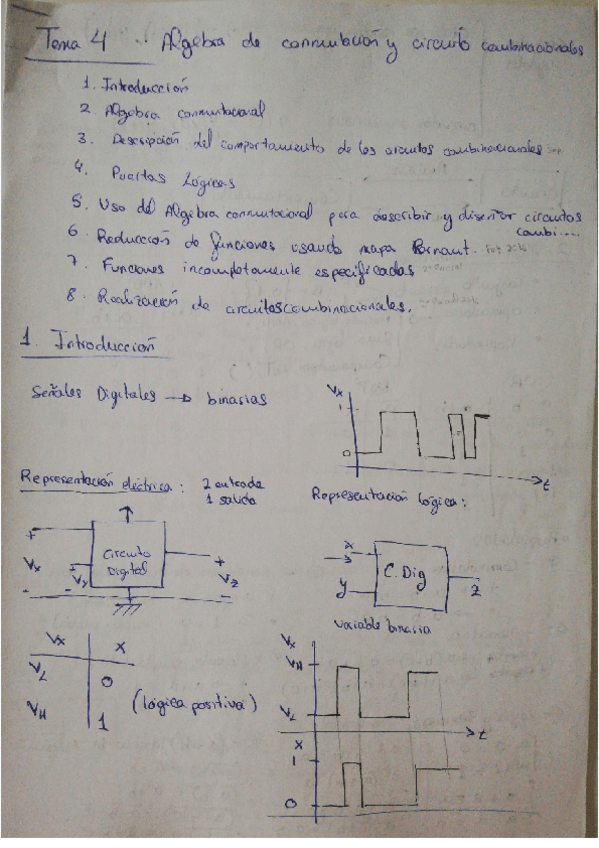 Tema 4 .. Algebra de conmutación y circuito combinacionales
1. Introducción
2. Algebra conmutacional
3. Descripción del comportamiento de los circuitos combinacionales
4. Puertas Lógicas
5. Uso del Algebra conmutacional para describir y diseñar circuitos
combi....
6. Reducción de funciones usando mapa
7. Funciones incompletamente especificadas
8. Realización de circuitos combinacionales.
1. Introducción
Señales Digitales → binarias
Vx
1
0
t
Representación eléctrica: 2 entrada
1 salida
Representación Lógica:
+
Vx
-
Vy
Circuito
Digital
+
Vz
-
x
y
C. Dig
z
Variable binaria
Vx x
VL 0
VH 1
(lógica positiva)
Vx
VH
VL
t
x
1
0